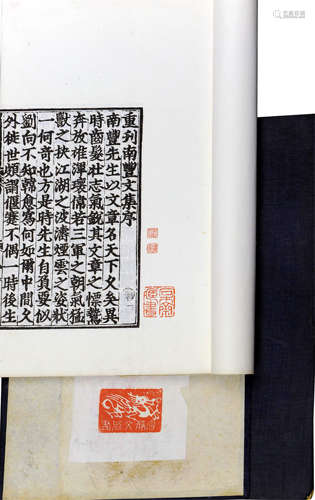 重刊南豐文集序
南豐先生以文章名天下久矣異
時齒髮壯志氣銳其文章之慓鷙
奔放雄渾瓌偉若三軍之朝氣猛
獸之抉江湖之波濤煙雲之姿狀
一何奇也方是時先生自負要似
劉向不知韓愈為何如爾中間久
外徙世頗謂偃蹇不偶一時後生